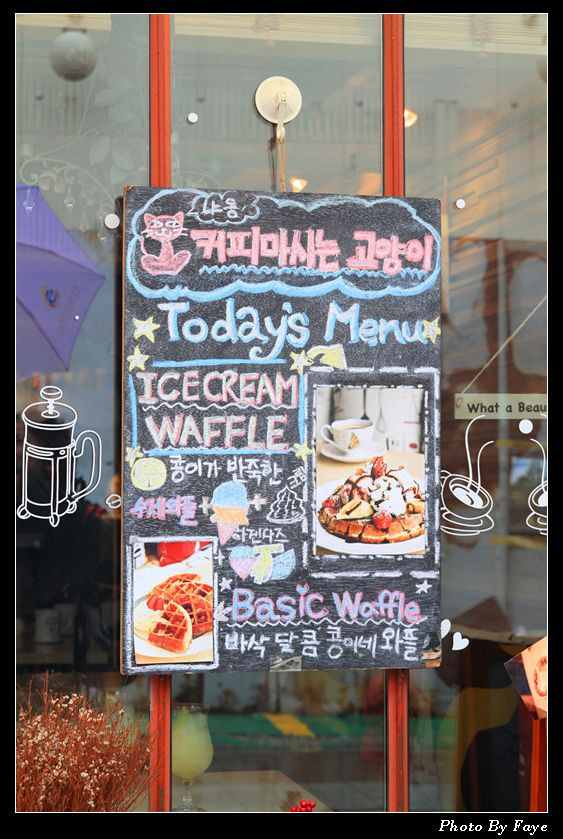 나옹
커피마시는 고양이
Today's Menu
ICE CREAM
WAFFLE
콩이가 반죽한
수제와플
하겐다즈
Basic Waffle
바삭 달콤 콩이네 와플
What a Beau
Photo By Faye